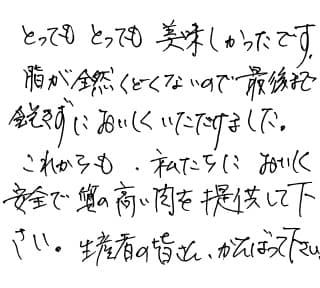 とってもとっても美味しかったです。
脂が全然くどくないので最後まで
飽きずにおいしくいただけました。
これからも、私たちにおいしく
安全で質の高い肉を提供して下
さい。生産者の皆さん、がんばって下さい。